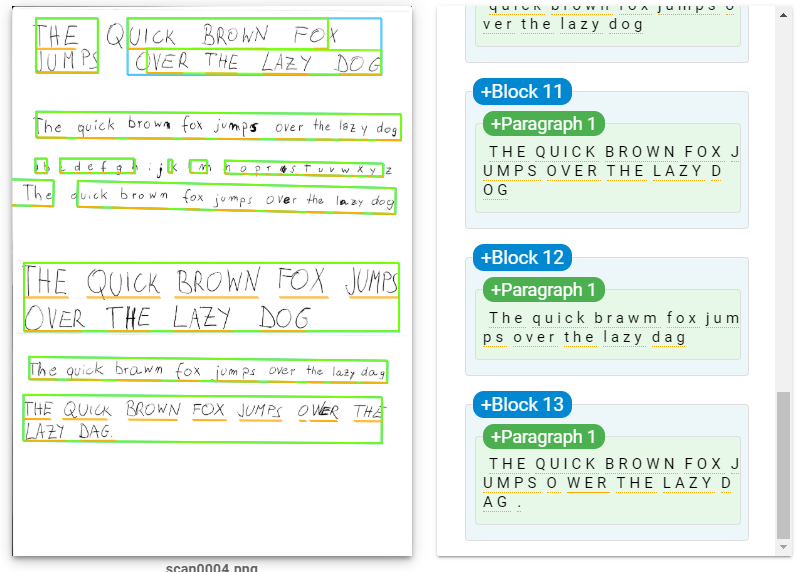 THE QUICK BROWN FOX
JUMPS OVER THE LAZY DOG
The quick brown fox jumps over the lazy dog
a b c d e f g h i j k l m n o p q r s t u v w x y z
The quick brown fox jumps over the lazy dog
THE QUICK BROWN FOX JUMPS
OVER THE LAZY DOG
The quick brawn fox jumps over the lazy dag
THE QUICK BROWN FOX JUMPS OWER THE
LAZY DAG.
scan0004.png
quick brown fox jumps o
ver the lazy dog
+Block 11
+Paragraph 1
THE QUICK BROWN FOX J
UMPS OVER THE LAZY D
OG
+Block 12
+Paragraph 1
The quick brawm fox jum
ps over the lazy dag
+Block 13
+Paragraph 1
THE QUICK BROWN FOX J
UMPS O WER THE LAZY D
AG .